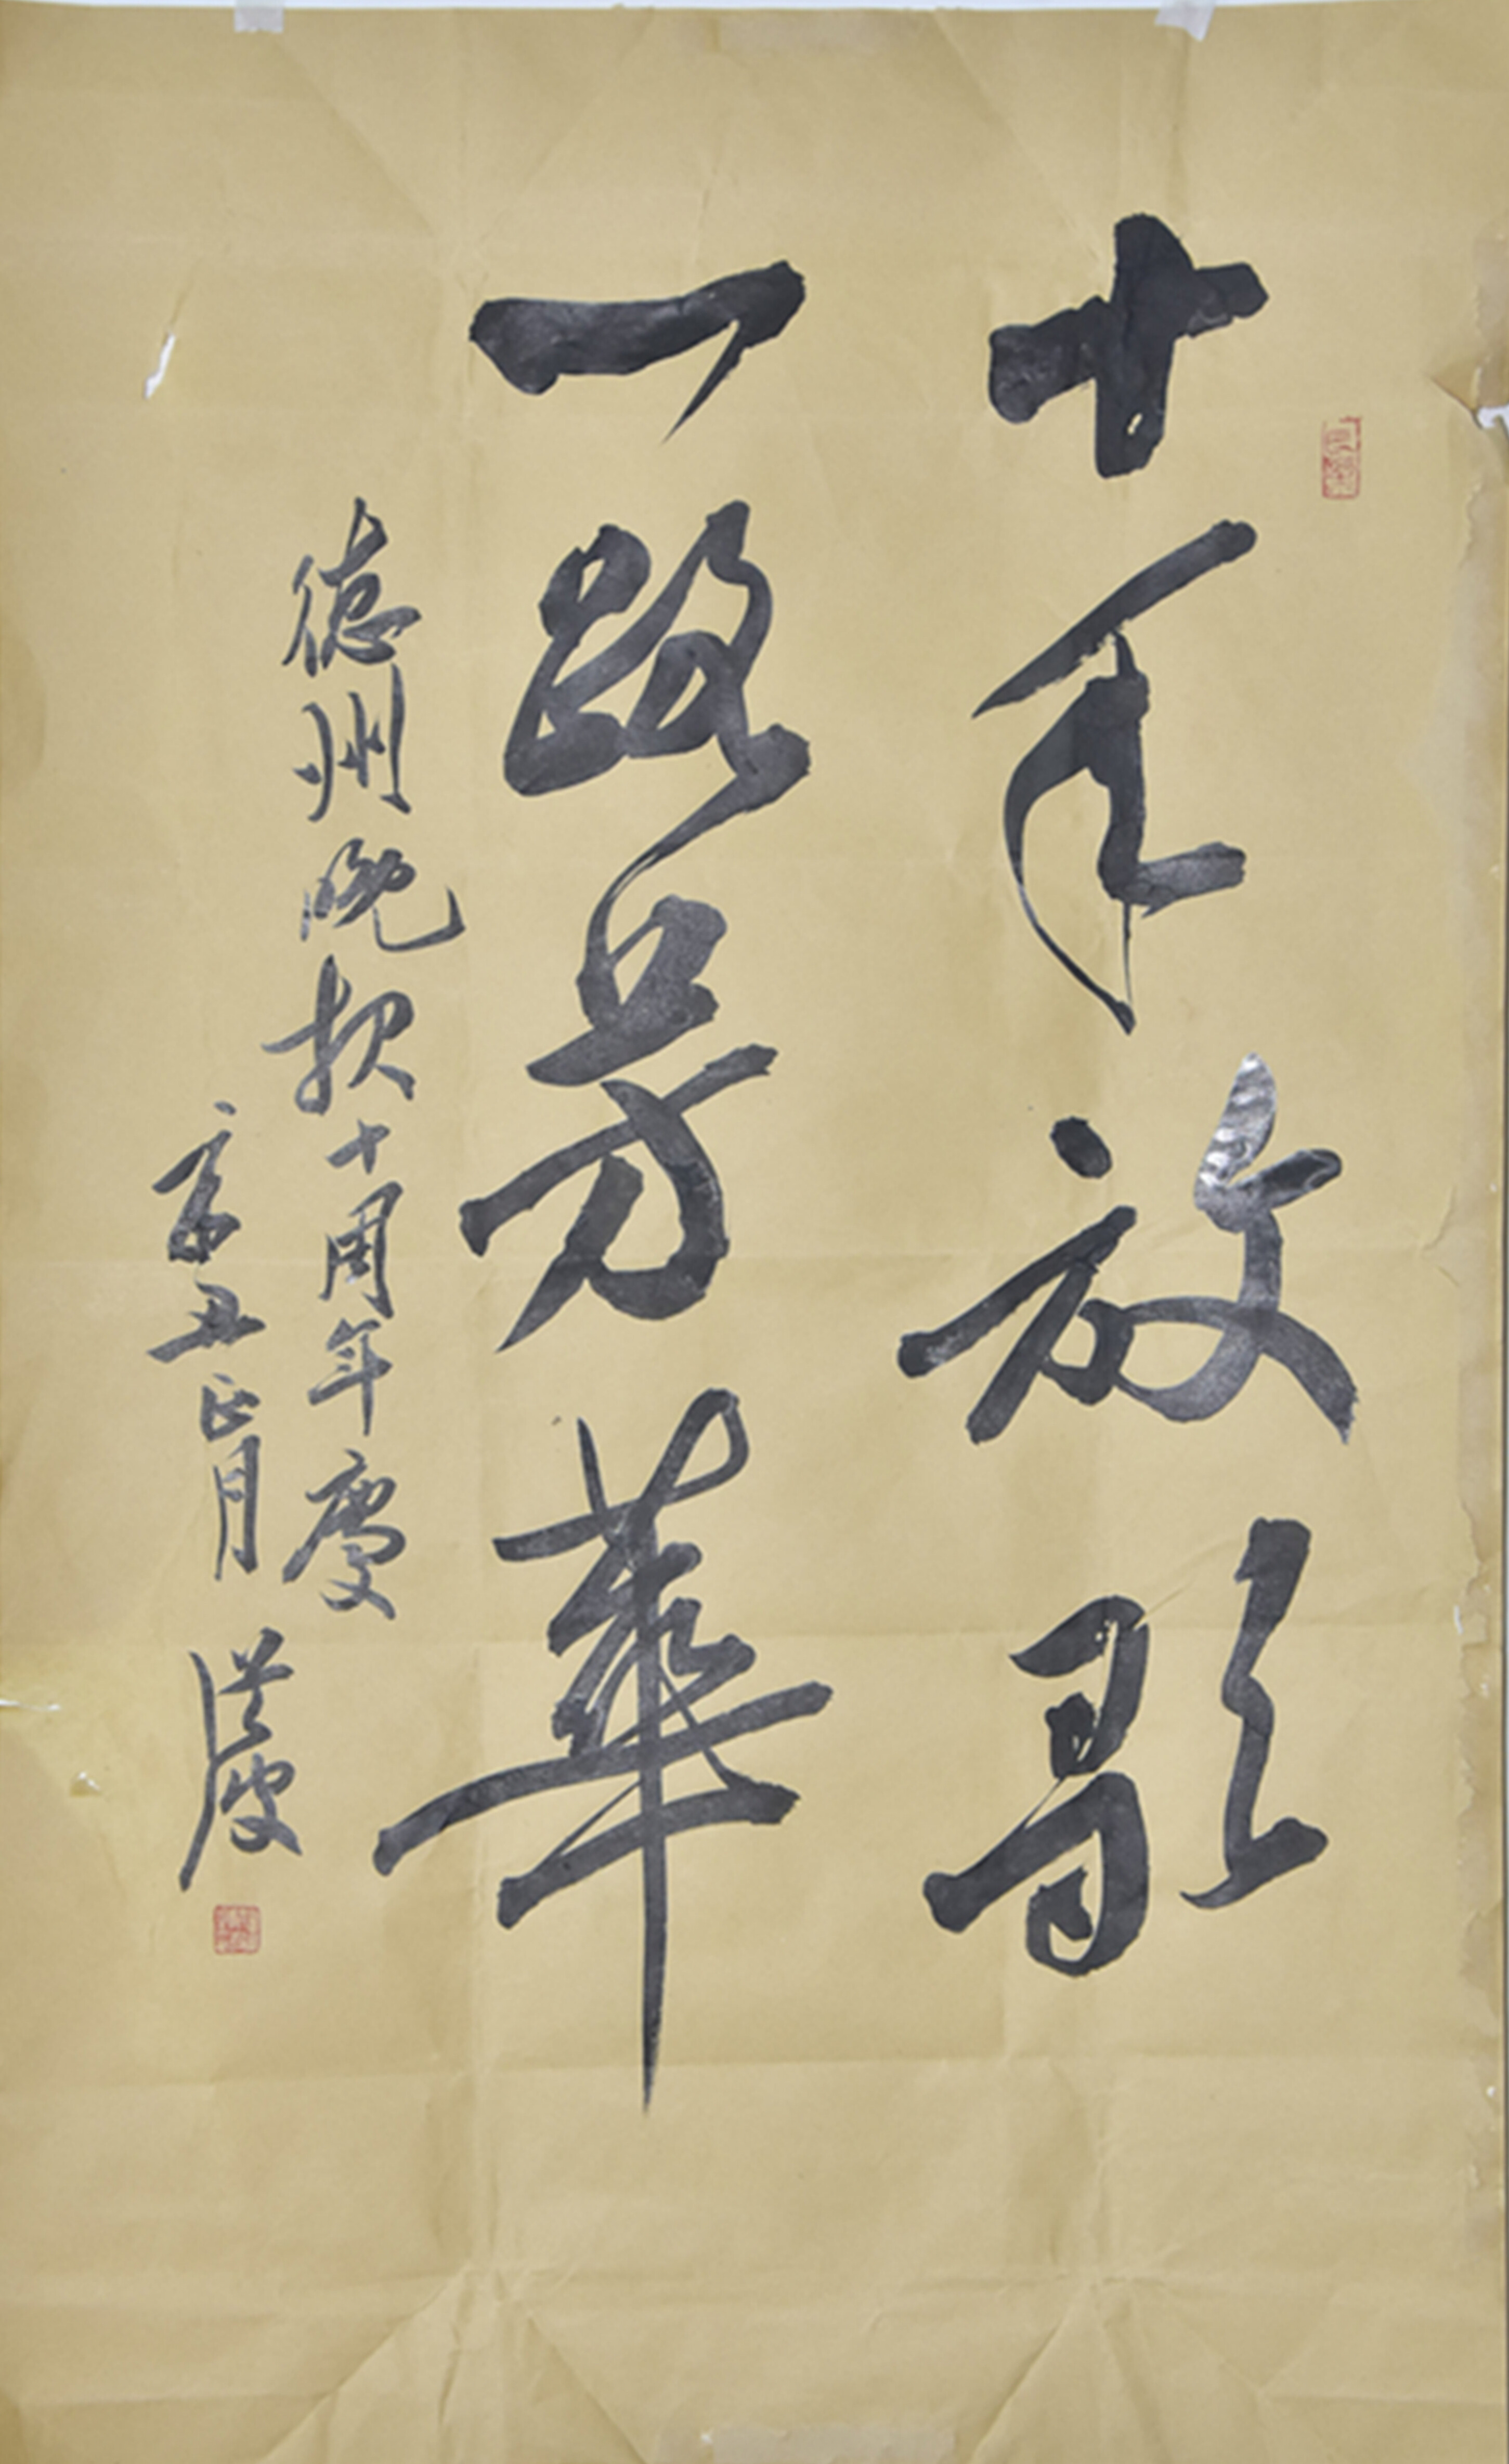 廿年放歌
一路芳華
德州晚报十周年慶
辛丑正月 洪慶